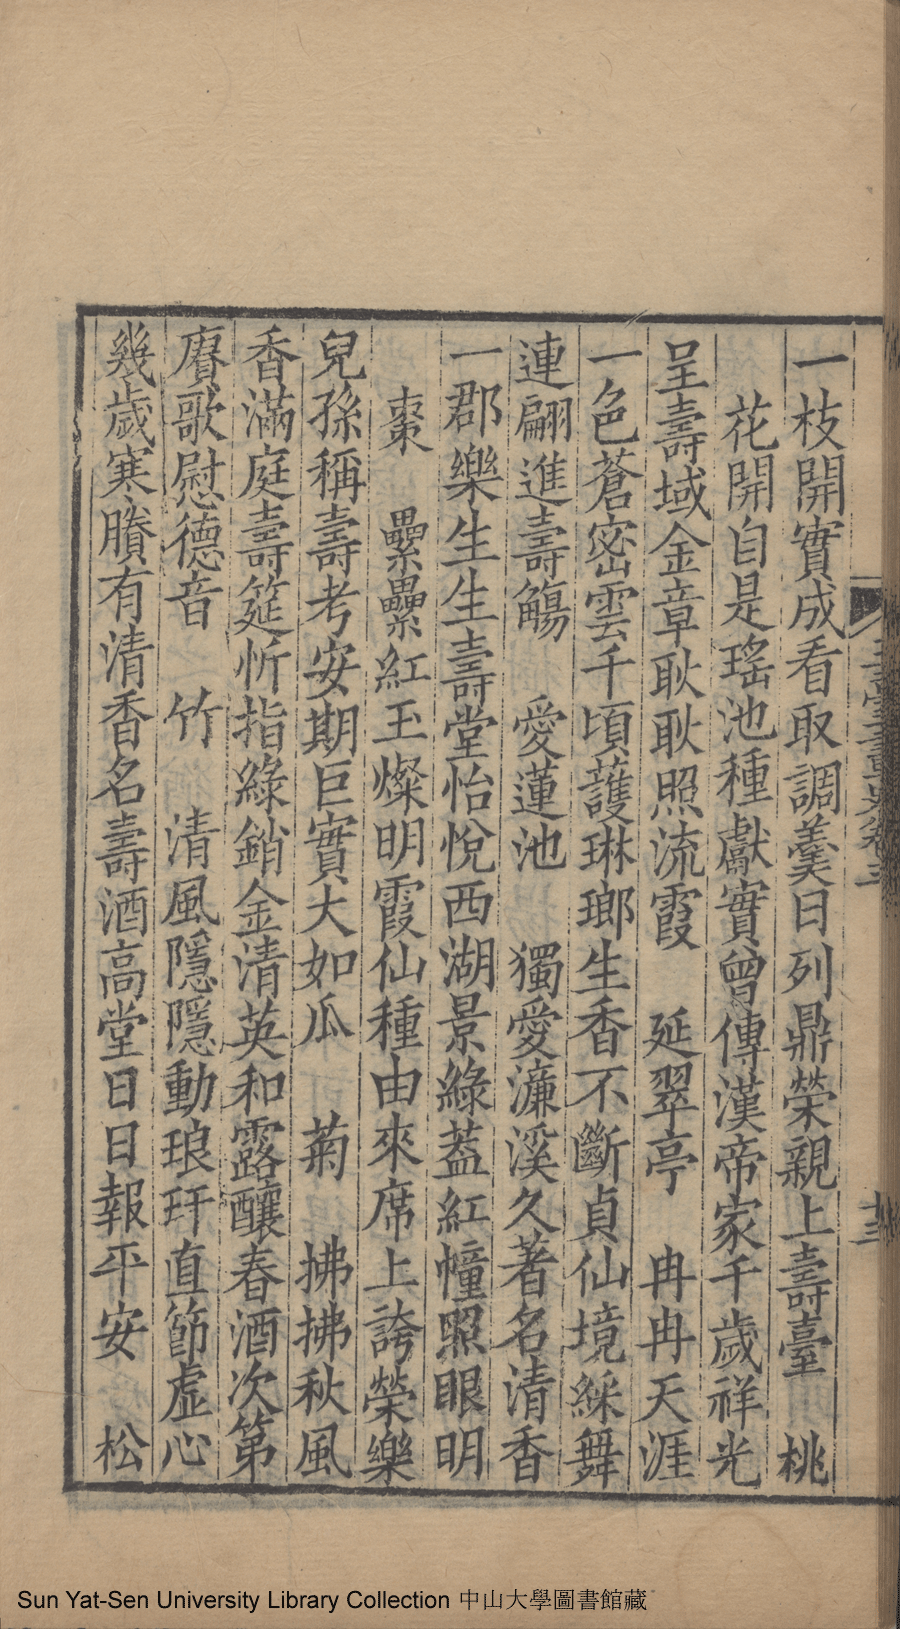 一枝開實成看取調羹日列鼎榮親上壽臺　桃
花開自是瑤池種獻實曾傳漢帝家千歲祥光
呈壽域金章耿耿照流霞　延翠亭　冉冉天涯
一色蒼密雲千頃護琳瑯生香不斷貞仙境綵舞
連翩進壽觴　愛蓮池　獨愛濂溪久著名清香
一郡樂生生壽堂怡悅西湖景綠蓋紅幢照眼明
棗　纍纍紅玉燦明霞仙種由來席上誇榮樂
兒孫稱壽考安期巨實大如瓜　菊　拂拂秋風
香滿庭壽筵忻指綠銷金清英和露釀春酒次第
賡歌慰德音　竹　清風隱隱動琅玕直節虛心
幾歲寒賸有清香名壽酒高堂日日報平安　松
卷三
廿三
Sun Yat-Sen University Library Collection 中山大學圖書館藏